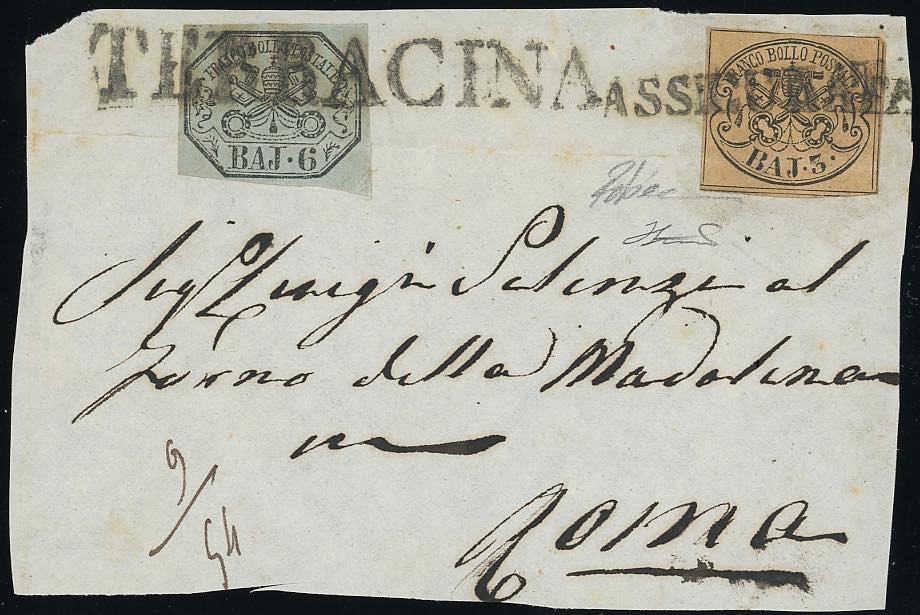 TERRACINA ASSICURATA
FRANCO BOLLO POSTALE
BAJ·6
FRANCO BOLLO POSTALE
BAJ·3·
Sigr Luigi Salenzi al
Forno della Madalena
Roma
9/54